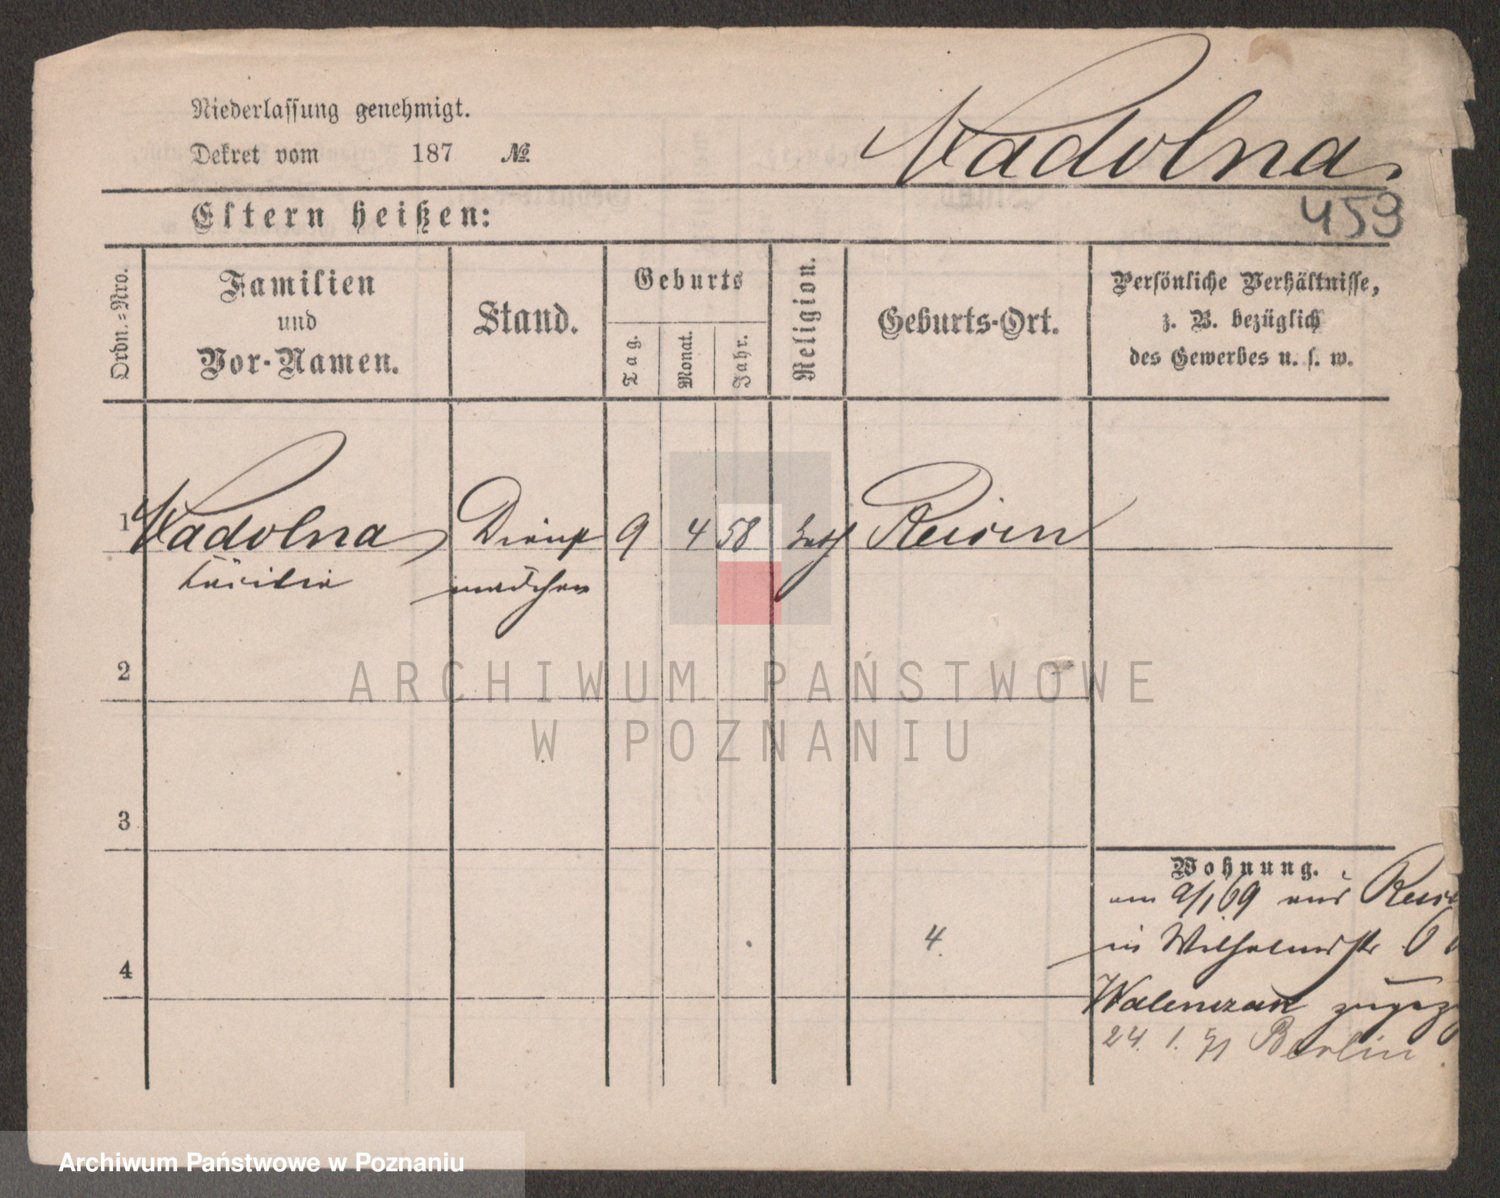 Niederlassung genehmigt.
Dekret vom 187 №
Nadolna
459
Eltern heißen:
Ordn.=Nro.
Familien
und
Vor-Namen.
Stand.
Geburts
Tag.
Monat.
Jahr.
Religion.
Geburts-Ort.
Persönliche Verhältnisse,
z. B. bezüglich
des Gewerbes u. s. w.
1 Nadolna Dienst 9 4 58 kath Reisen
Cäcilie mädchen
ARCHIWUM PAŃSTWOWE
W POZNANIU
2
3
4
Wohnung.
am 9/1 69 aus
in Wilhelmstr. 6
4.
zugez
24. 1. 71 Berlin
Archiwum Państwowe w Poznaniu